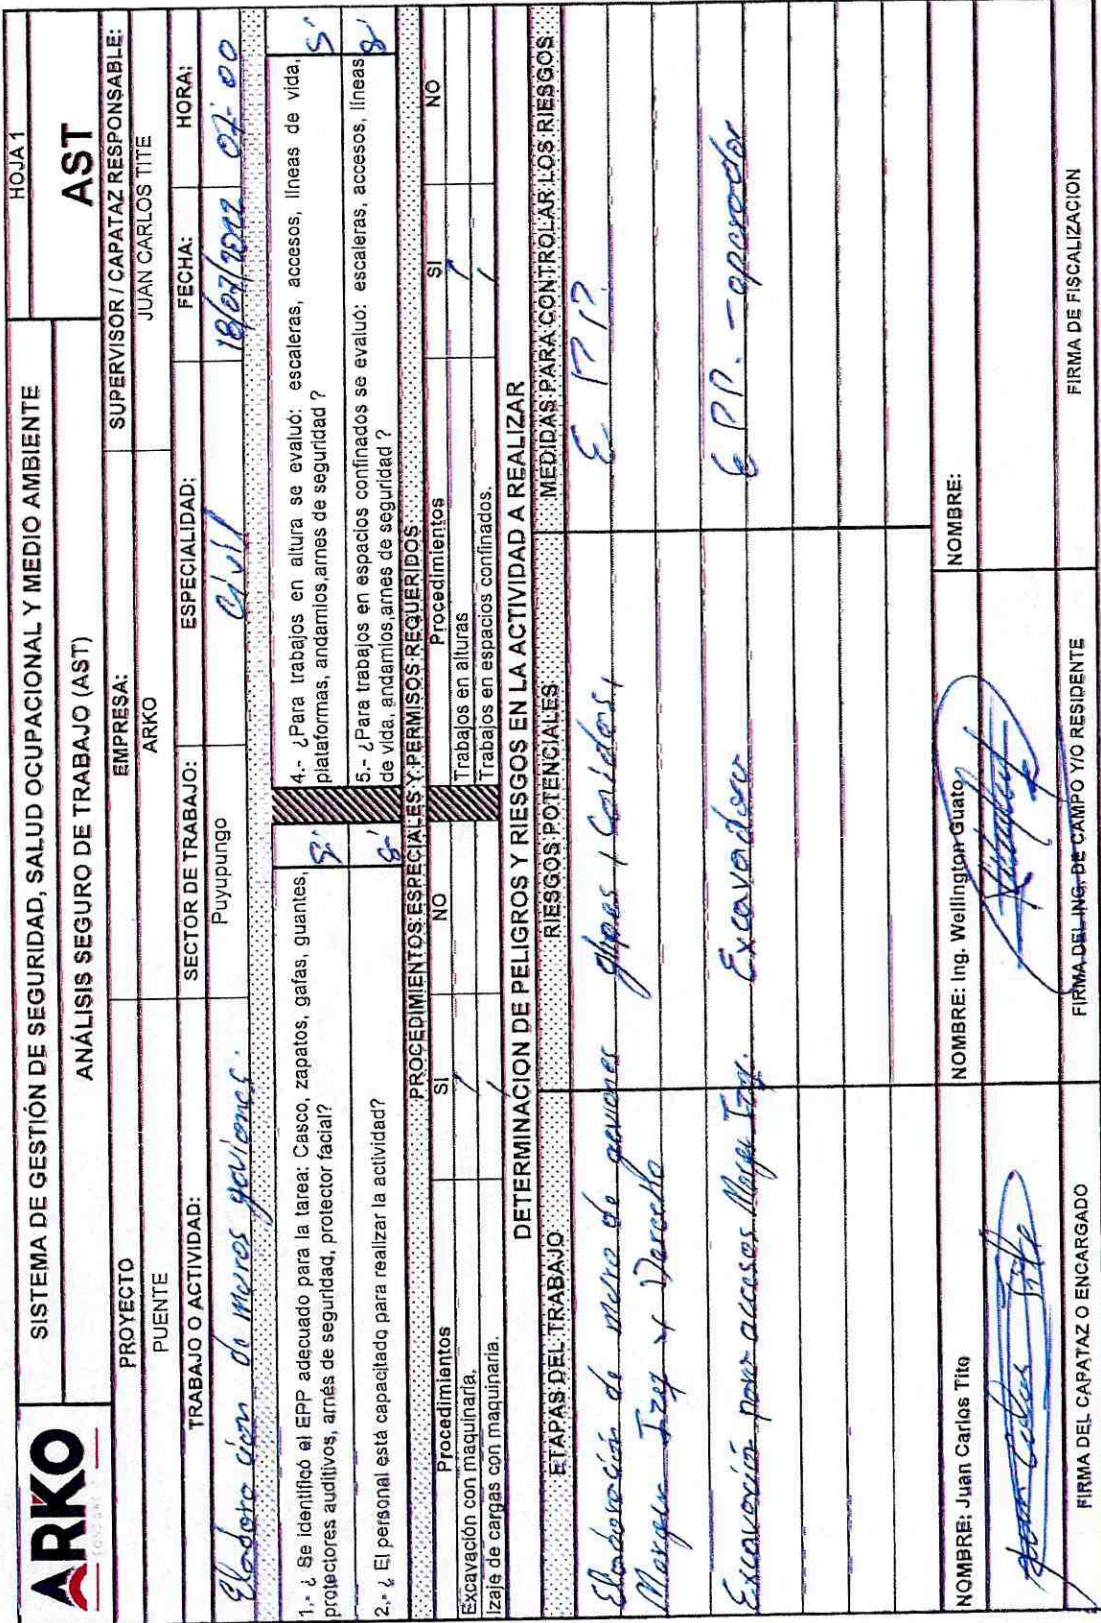 ARKO
SISTEMA DE GESTIÓN DE SEGURIDAD, SALUD OCUPACIONAL Y MEDIO AMBIENTE
HOJA 1
ANÁLISIS SEGURO DE TRABAJO (AST)
AST
PROYECTO
EMPRESA:
SUPERVISOR / CAPATAZ RESPONSABLE:
PUENTE
ARKO
JUAN CARLOS TITE
TRABAJO O ACTIVIDAD:
SECTOR DE TRABAJO:
ESPECIALIDAD:
FECHA:
HORA:
Elaboración de muros gaviones.
Puyupungo
Civil
18/07/2022
07:00
1.- ¿ Se identificó el EPP adecuado para la tarea: Casco, zapatos, gafas, guantes, protectores auditivos, arnés de seguridad, protector facial?
Si
4.- ¿Para trabajos en altura se evaluó: escaleras, accesos, líneas de vida, plataformas, andamios,arnes de seguridad ?
Si
2.- ¿ El personal está capacitado para realizar la actividad?
Si
5.- ¿Para trabajos en espacios confinados se evaluó: escaleras, accesos, líneas de vida, andamios,arnes de seguridad ?
Si
PROCEDIMIENTOS ESPECIALES Y PERMISOS REQUERIDOS
Procedimientos
SI
NO
Procedimientos
SI
NO
Excavación con maquinaria.
/
Trabajos en alturas
/
Izaje de cargas con maquinaria.
/
Trabajos en espacios confinados.
/
DETERMINACION DE PELIGROS Y RIESGOS EN LA ACTIVIDAD A REALIZAR
ETAPAS DEL TRABAJO
RIESGOS POTENCIALES
MEDIDAS PARA CONTROLAR LOS RIESGOS
Elaboración de muro de gaviones
golpes,
E. P P
Margen Izq y
Excavación para accesos Margen Izq.
Excavadora
E PP. - operador
NOMBRE: Juan Carlos Tite
NOMBRE: Ing. Wellington Guato
NOMBRE:
Juan Carlos Tite
FIRMA DEL CAPATAZ O ENCARGADO
FIRMA DEL ING. DE CAMPO Y/O RESIDENTE
FIRMA DE FISCALIZACION